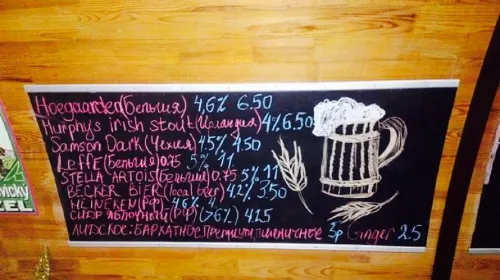 Hoegaarden (Бельгия) 4,6% 6.50
Murphys irish stout (Ирландия) 4% 6.50
Samson Dark (Чехия) 4.5% 4.50
Leffe (Бельгия) 0.75 5% 11
STELLA ARTOIS (Бельгия) 0.75 5% 11
BECKER BIER (local beer) 4.2% 3.50
HEINEKEN (РФ) 4.6% 4
СИДР ЯБЛОЧНЫЙ (РФ) (>6%) 4.25
ЛИДСКОЕ: БАРХАТНОЕ, Премиум, пшеничное 3р Ginger 2.5